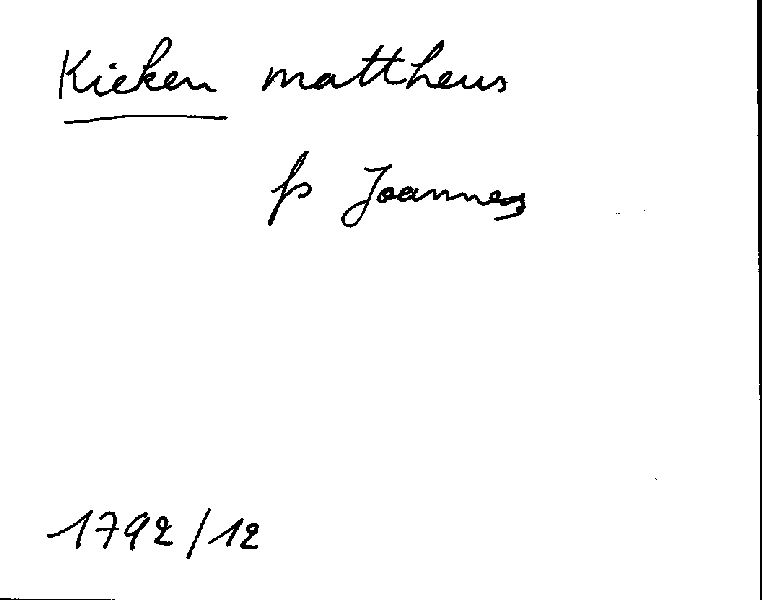 Kieken mattheus
fs Joannes
1792/12